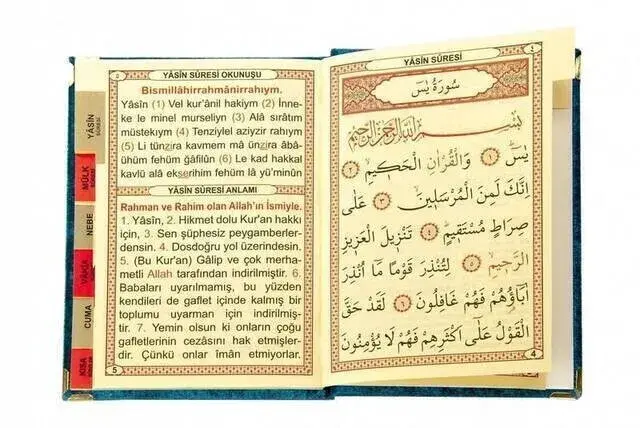 YÂSİN SÛRESİ OKUNUŞU
Bismillâhirrahmânirrahıym.
Yâsîn (1) Vel kur'ânil hakiym (2) İnne-
ke le minel murseliyn (3) Alâ sırâtım
müstekıym (4) Tenziylel aziyzir rahıym
(5) Li tünzira kavmem mâ ünzira âbâ-
ühüm fehüm ğâfilûn (6) Le kad hakkal
kavlü alâ ekserihim fehüm lâ yü'minûn
YÂSİN SÛRESİ ANLAMI
Rahman ve Rahim olan Allah'ın İsmiyle.
1. Yâsîn, 2. Hikmet dolu Kur'an hakkı
için, 3. Sen şüphesiz peygamberler-
densin. 4. Dosdoğru yol üzerindesin.
5. (Bu Kur'an) Gâlip ve çok merha-
metli Allah tarafından indirilmiştir. 6.
Babaları uyarılmamış, bu yüzden
kendileri de gaflet içinde kalmış bir
toplumu uyarman için indirilmiş-
tir. 7. Yemin olsun ki onların çoğu
gafletlerinin cezasını hak etmişler-
dir. Çünkü onlar îmân etmiyorlar.
5
YÂSİN SÛRESİ
MÜLK SÛRESİ
NEBE
VÂKIA
CUMA
KISA
٤
YÂSİN SÛRESİ
سُورَةُ يٰسٓ
بِسْمِ اللّٰهِ الرَّحْمٰنِ الرَّحِيمِ
يٰسٓ ﴿١﴾ وَالْقُرْاٰنِ الْحَكِيمِ ﴿٢﴾
اِنَّكَ لَمِنَ الْمُرْسَلِينَ ﴿٣﴾ عَلٰى
صِرَاطٍ مُسْتَقِيمٍ ﴿٤﴾ تَنْزِيلَ الْعَزِيزِ
الرَّحِيمِ ﴿٥﴾ لِتُنْذِرَ قَوْمًا مَٓا اُنْذِرَ
اٰبَٓاؤُ۬هُمْ فَهُمْ غَافِلُونَ ﴿٦﴾ لَقَدْ حَقَّ
الْقَوْلُ عَلٰٓى اَكْثَرِهِمْ فَهُمْ لَا يُؤْمِنُونَ
4